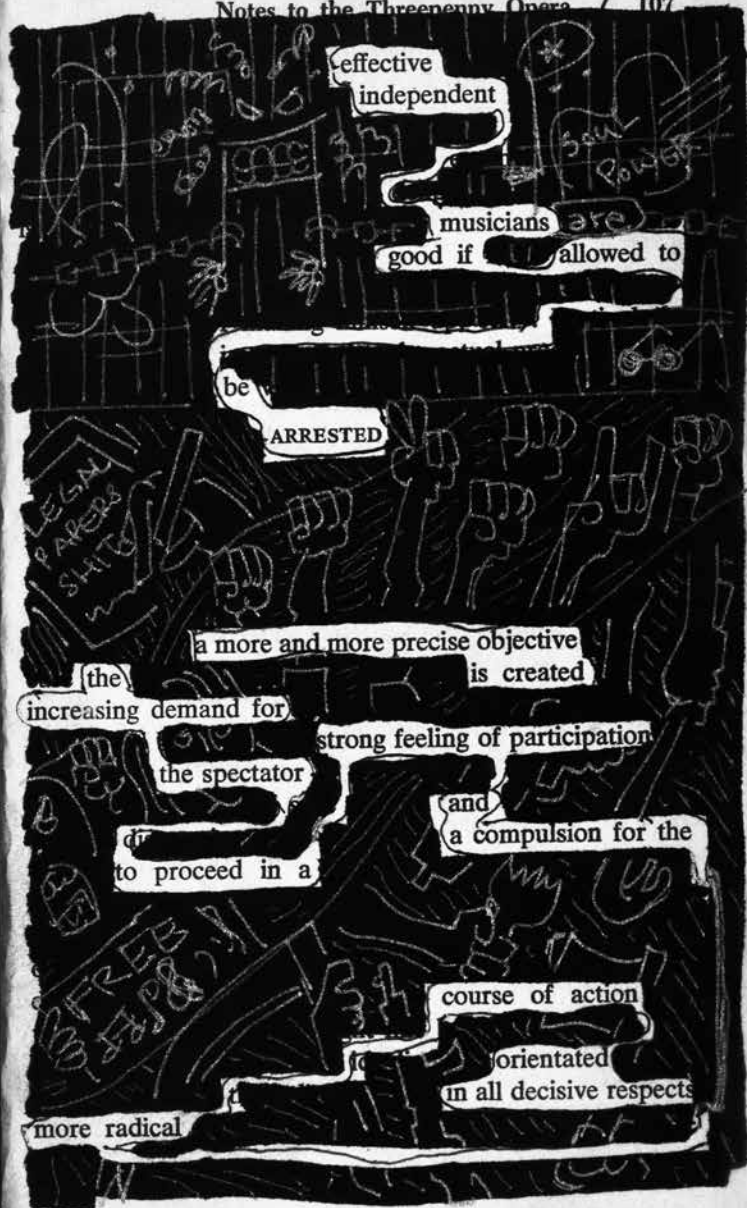 Notes to the Threepenny Opera / 107
effective
independent
3505
SOUL
POWER
musicians are
good if allowed to
be
ARRESTED
LEGAL
PAPERS
SHITE
a more and more precise objective
is created
the
increasing demand for
strong feeling of participation
the spectator
and
a compulsion for the
to proceed in a
FREE
course of action
orientated
in all decisive respects
more radical